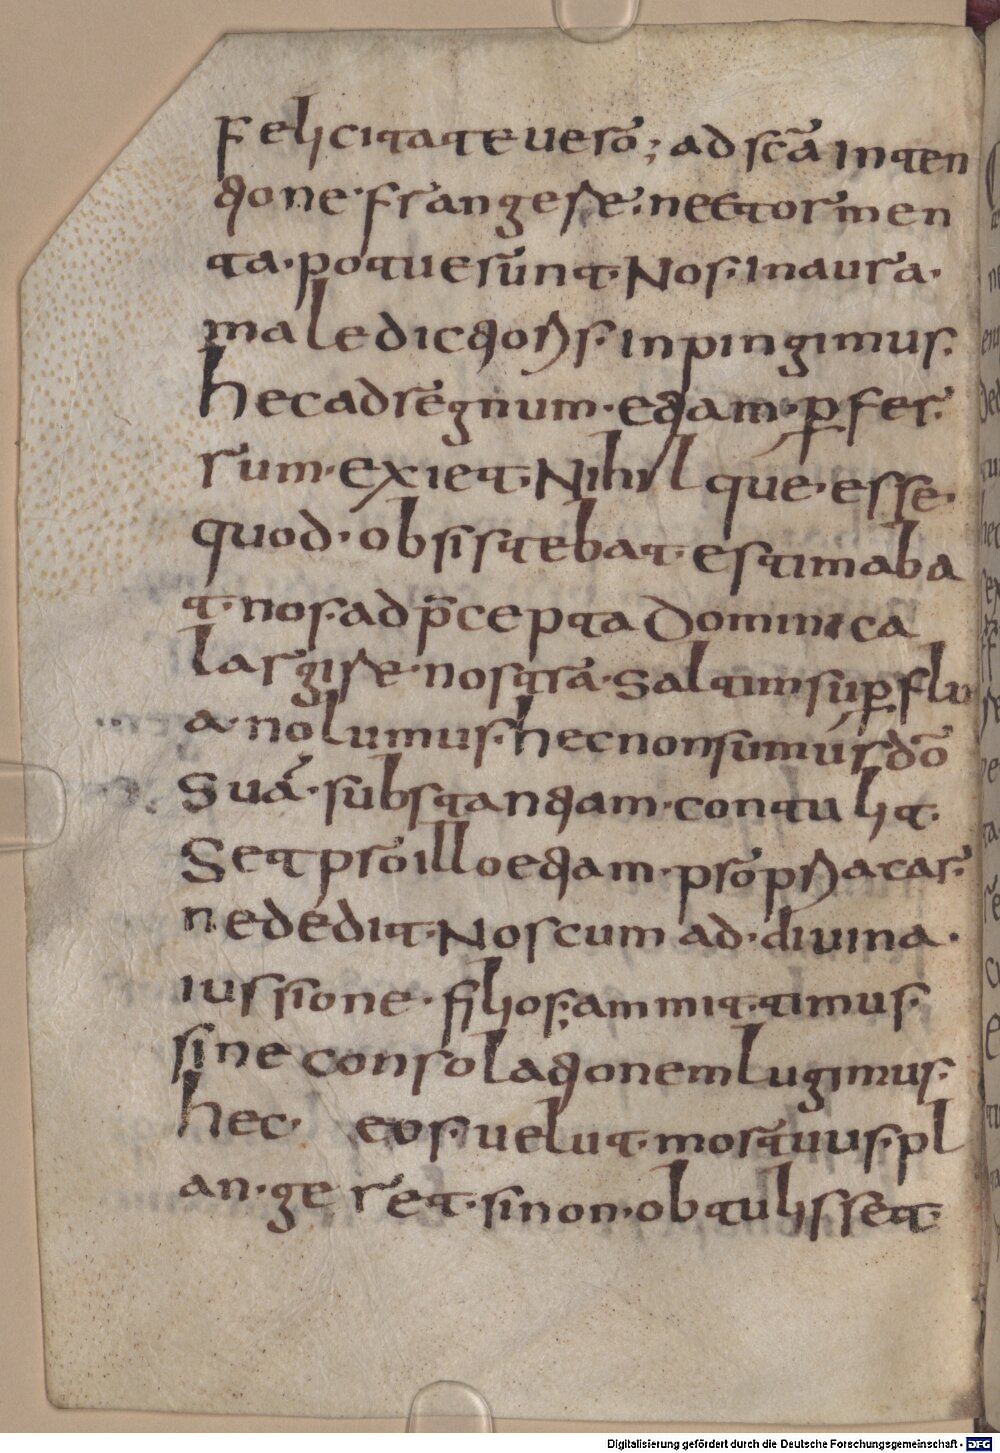 Felicitate uero; ad scā inten
tione· frangere· nec tormen
ta· potuerunt· Nos· in aura·
maledictionis· inpingimus·
hec ad regnum· etiam· ꝑ fer
rum· exiet· Nihil que· esse·
quod· obsistebat· estimaba
t· nos· ad p̄cepta Dominica
largire· nostra· saltim suꝑflu
a· nolumus· hec non sumus dō
Suā· substantiam· contulit·
Set pro illo etiam· propria car
ne dedit· Nos cum ad· diuina·
iussione· filios; ammit·timus·
sine consolationem lugimus·
hec· eos· uelut· mortuus· pl
an·geret· si non· obtulisset·
Digitalisierung gefördert durch die Deutsche Forschungsgemeinschaft - DFG